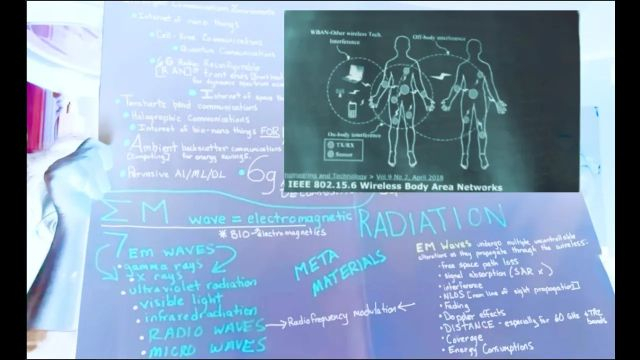 Internet of nano things
Cell-free Communications
Quantum Communications
6G Radio Reconfigurable
[RAN] front ends
for dynamic spectrum
Internet of space th
Terahertz band communications
Holographic Communications
Internet of bio-nano things FOR
Ambient backscatter communications
[Computing] for energy savings.
Pervasive AI/ML/DL
6g
WBAN-Other wireless Tech.
Interference
Off-body interference
On-body interference
TX/RX
Sensor
and Technology > Vol 9 No 2, April 2018
IEEE 802.15.6 Wireless Body Area Networks
EM wave = electromagnetic RADIATION
* BIO-electromagnetics
EM WAVES
gamma rays
x rays
ultraviolet radiation
visible light
infrared radiation
RADIO WAVES → Radiofrequency modulation
MICRO WAVES
META
MATERIALS
EM Waves undergo multiple uncontrollable
alterations as they propagate through the wireless:
free space path loss
signal absorption (SAR x)
interference
NLOS [non line of sight propagation]
Fading
Doppler effects
DISTANCE - especially for 60 GHz + THz
bands
Coverage
Energy Consumptions